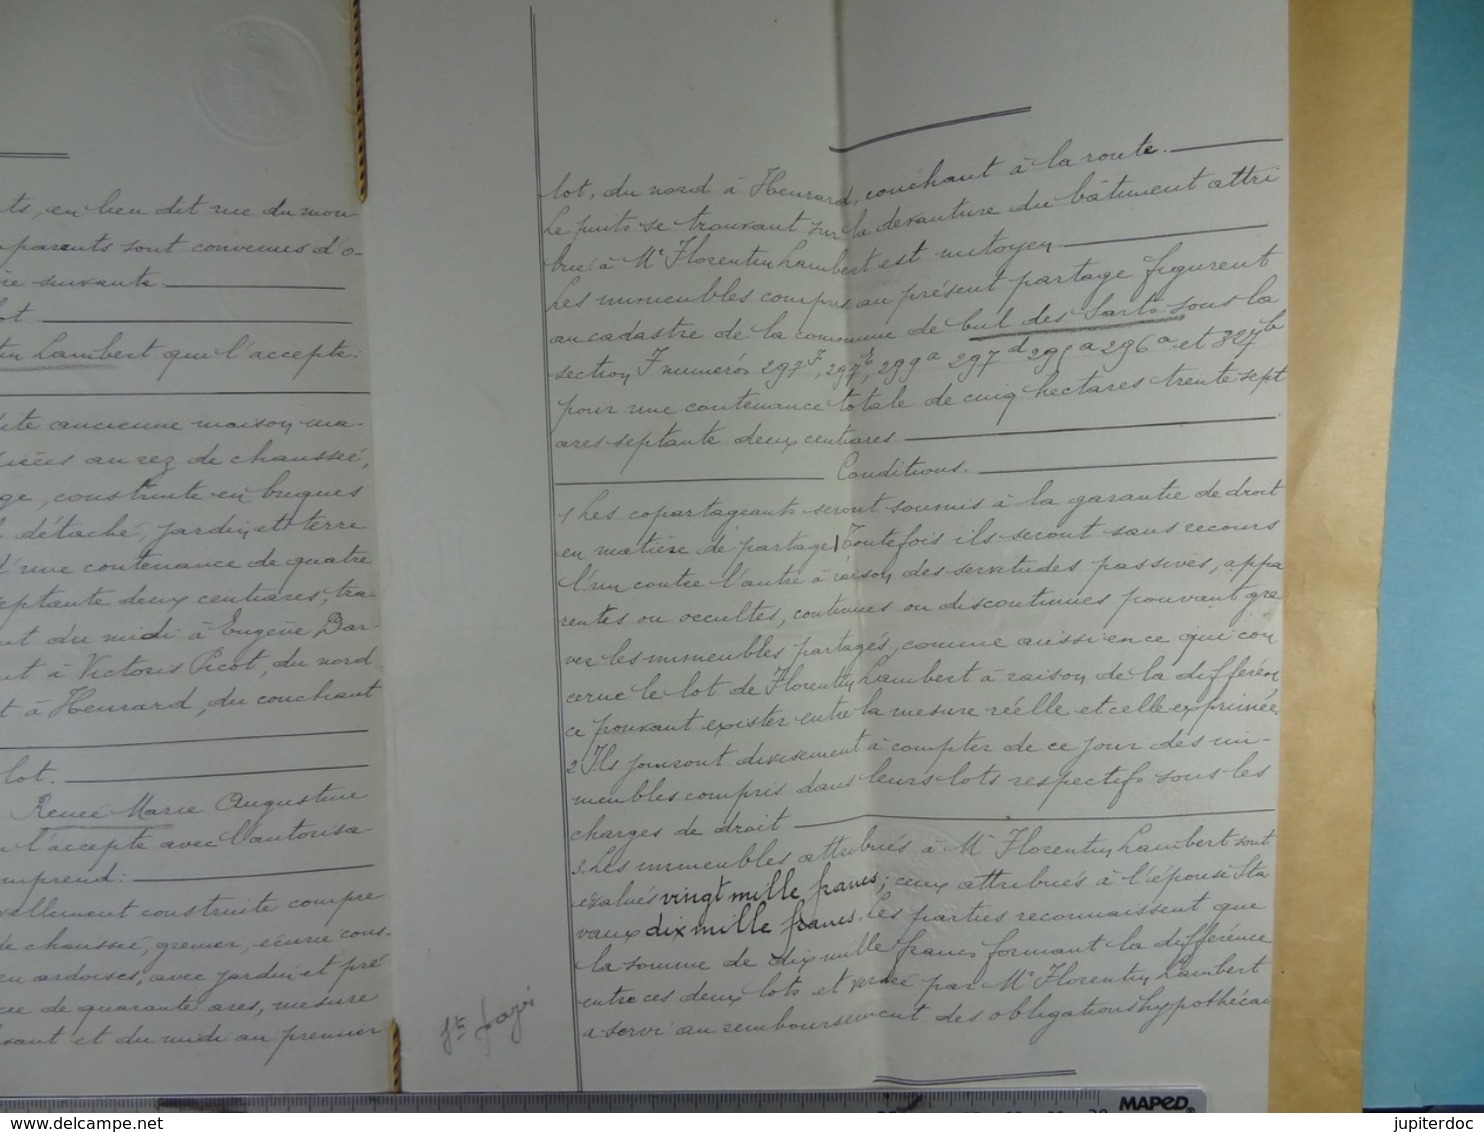 ts, en lieu dit rue du mou
parents sont convenus d'o-
re suivante.
ot.
tin Lambert qui l'accepte:
dite ancienne maison, ma-
pièces au rez de chaussée,
ge, construite en briques
détaché, jardin, et terre
d'une contenance de quatre
septante deux centiares, tra-
nt du midi à Eugène Bar-
nt à Victoris Picot, du nord
t à Heurard, du couchant
lot.
Renée Marie Augustine
l'accepte avec l'autorisa
mprend:
vellement construite compre
de chaussée, grenier, écurie cons-
en ardoises, avec jardin et pré
ce de quarante ares, mesure
vant et du midi au premier
lot, du nord à Heurard, couchant à la route.
Le puits se trouvant sur la devanture du bâtiment attri
bué à Mr Florentin Lambert est mitoyen
Les immeubles compris au présent partage figurent
au cadastre de la commune de bul des Sarts sous la
section F numéros 297F, 297E, 299a 297d 295a 296a et 327b
pour une contenance totale de cinq hectares trente sept
ares septante deux centiares
Conditions.
1 Les copartageants seront soumis à la garantie de droit
en matière de partage, Toutefois ils seront sans recours
l'un contre l'autre à raison des servitudes passives, appa
rentes ou occultes, continues ou discontinues pouvant gre
ver les immeubles partagés, comme aussi en ce qui con
cerne le lot de Florentin Lambert à raison de la différen
ce pouvant exister entre la mesure réelle et celle exprimée
2 Ils jouiront divisement à compter de ce jour des im-
meubles compris dans leurs lots respectifs sous les
charges de droit
3. Les immeubles attribués à Mr Florentin Lambert sont
évalués vingt mille francs; ceux attribués à l'épouse Sta
vaux dix mille francs. Les parties reconnaissent que
la somme de dix mille francs formant la différence
entre ces deux lots et versée par Mr Florentin Lambert
a servi au remboursement des obligations hypothécai
MAPED
jupiterdoc